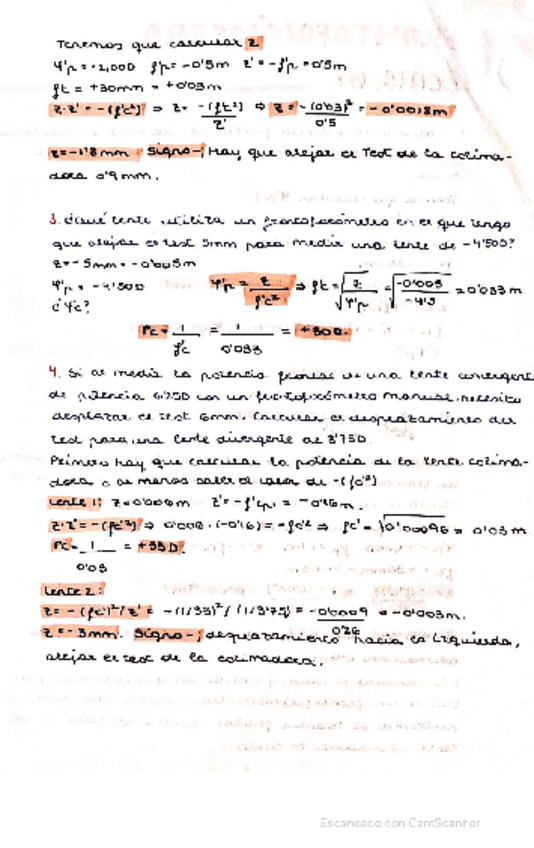 Tenemos que calcular z
φ'p = -2,00D f'p = -0'5m z' = -f'p = 0'5m
f't = +30mm = +0'03m
z·z' = -(f'c²) ⇒ z = -(f'c²)/z' ⇒ z = -(0'03)²/0'5 = -0'0018m
z = -1'8mm. Signo -; Hay que alejar el Test de la colima-
dora 0'9mm.
3. ¿Qué lente utiliza un frontofocómetro en el que tengo
que alejar el test 5mm para medir una lente de -4'50D?
z = -5mm = -0'005m
φ'p = -4'50D φ'p = z/f'c² ⇒ f't = √(z/φ'p) = √(-0'005/-4'5) = 0'033m
¿φ'c?
Pc = 1/f'c = 1/0'033 = +30D.
4. Si al medir la potencia frontal de una lente convergente
de potencia 6'25D con un frontofocómetro manual, necesito
desplazar el test 6mm. Calcular el desplazamiento del
test para una lente divergente de 3'75D.
Primero hay que calcular la potencia de la lente colima-
dora o al menos saber el valor de -(f'c²)
Lente 1: z = 0'006m z' = -f'cp = -0'16m.
z·z' = -(f'c²) ⇒ 0'006·(-0'16) = -f'c² ⇒ f'c' = √0'00096 = 0'03m
Pc = 1/0'03 = +33D.
Lente 2:
z = -(f'c)²/z' = -(1/33)²/(1/3'75) = -0'0009/0'26 = -0'003m.
z = -3mm. Signo -; desplazamiento hacia la izquierda,
alejar el test de la colimadora.
Escaneado con CamScanner